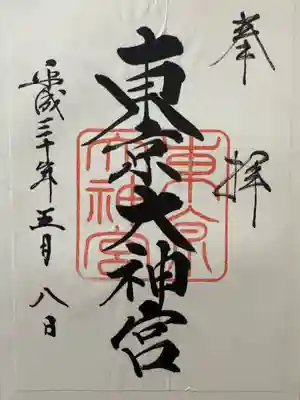 奉拝
東京大神宮
東京大神宮
平成三十年五月八日